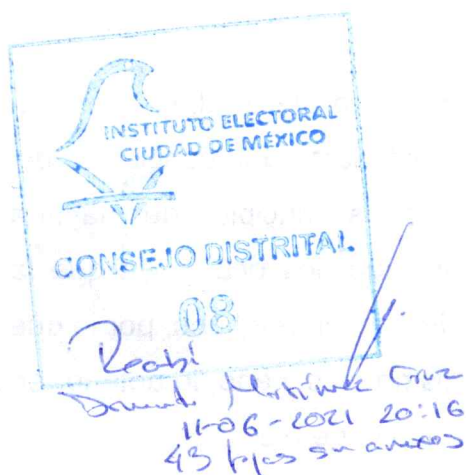 INSTITUTO ELECTORAL
CIUDAD DE MÉXICO
CONSEJO DISTRITAL
08
Recibí
Martínez Cruz
11-06-2021 20:16
43 fojas sin anexos